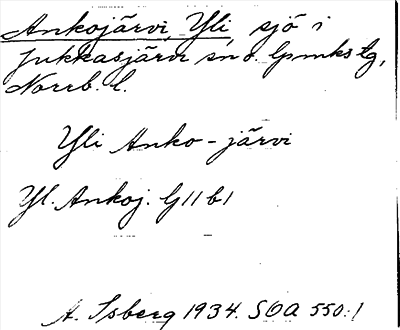 Ankojärvi, Yli, sjö i
Jukkasjärvi sn o. lpmks tg,
Norrb. l.
Yli Anko-järvi
Yl. Ankoj. G11b1
A. Isberg 1934. SOA 550:1